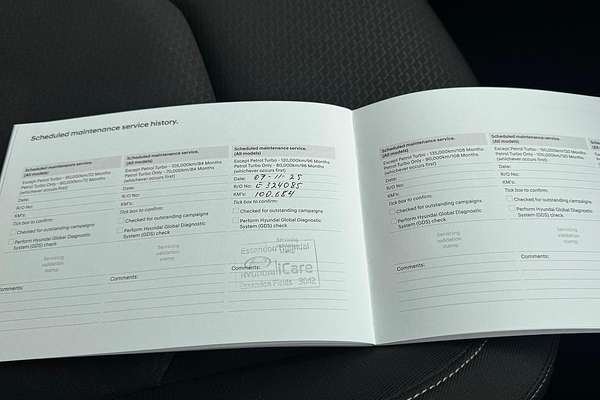 Scheduled maintenance service history.
Scheduled maintenance service.
(All models)
Except Petrol Turbo
Petrol Turbo Only
(whichever occurs first)
Date:
R/O No:
KM's:
Tick box to confirm:
Checked for outstanding campaigns
Perform Hyundai Global Diagnostic
System (GDS) check
Servicing
validation
stamp
Comments:
Scheduled maintenance service.
(All models)
Except Petrol Turbo
Petrol Turbo Only
(whichever occurs first)
Date:
R/O No:
KM's:
Tick box to confirm:
Checked for outstanding campaigns
Perform Hyundai Global Diagnostic
System (GDS) check
Servicing
validation
stamp
Comments:
Scheduled maintenance service.
(All models)
Except Petrol Turbo - 120,000km/96 Months
Petrol Turbo Only - 80,000km/96 Months
(whichever occurs first)
Date: 07-11-25
R/O No: E324085
KM's: 100,684
Tick box to confirm:
Checked for outstanding campaigns
Perform Hyundai Global Diagnostic
System (GDS) check
Essendon Hyundai
iCare
Essendon Fields 3042
Comments:
Scheduled maintenance service.
(All models)
Except Petrol Turbo - 135,000km/108 Months
Petrol Turbo Only - 90,000km/108 Months
(whichever occurs first)
Date:
R/O No:
KM's:
Tick box to confirm:
Checked for outstanding campaigns
Perform Hyundai Global Diagnostic
System (GDS) check
Servicing
validation
stamp
Comments:
Scheduled maintenance service.
(All models)
Except Petrol Turbo
Petrol Turbo Only
(whichever occurs first)
Date:
R/O No:
KM's:
Tick box to confirm:
Checked for outstanding campaigns
Perform Hyundai Global Diagnostic
System (GDS) check
Servicing
validation
stamp
Comments: